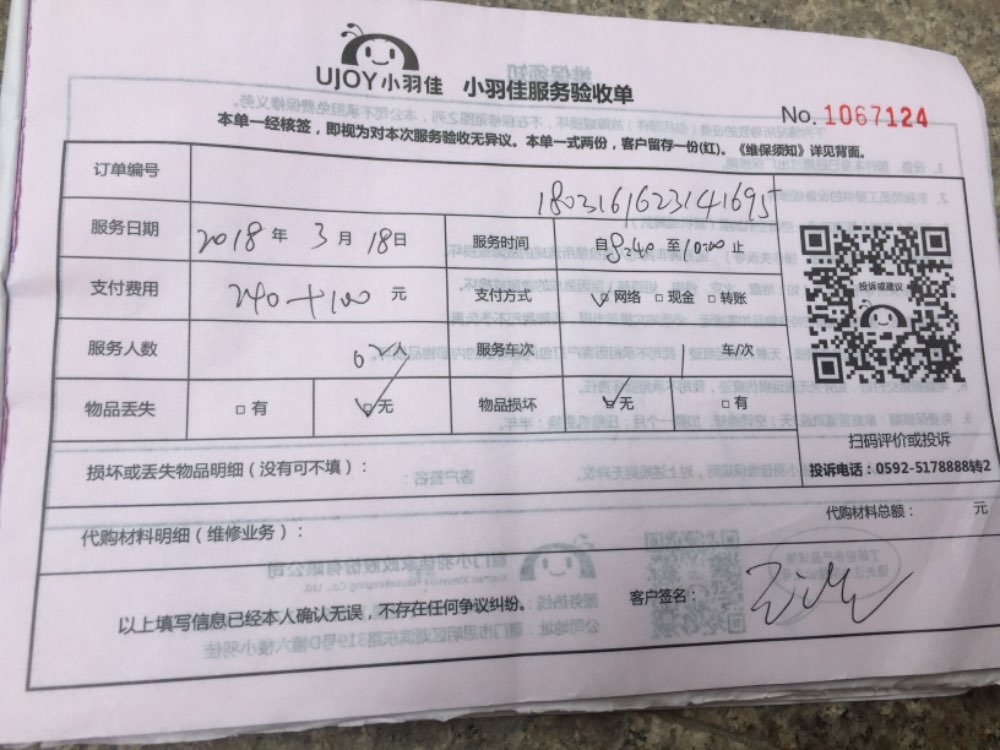 UJOY小羽佳 小羽佳服务验收单
No. 1067124
本单一经核签，即视为对本次服务验收无异议。本单一式两份，客户留存一份(红)。《维保须知》详见背面。
订单编号 1803161623141695
服务日期 2018年3月18日 服务时间 自8:40至10:00止
支付费用 240+100元 支付方式 ☑网络 □现金 □转账
投诉或建议
服务人数 02人 服务车次 1车/次
物品丢失 □有 ☑无 物品损坏 ☑无 □有
扫码评价或投诉
损坏或丢失物品明细（没有可不填）：
投诉电话：0592-5178888转2
代购材料明细（维修业务）：
代购材料总额： 元
以上填写信息已经本人确认无误，不存在任何争议纠纷。 客户签名：